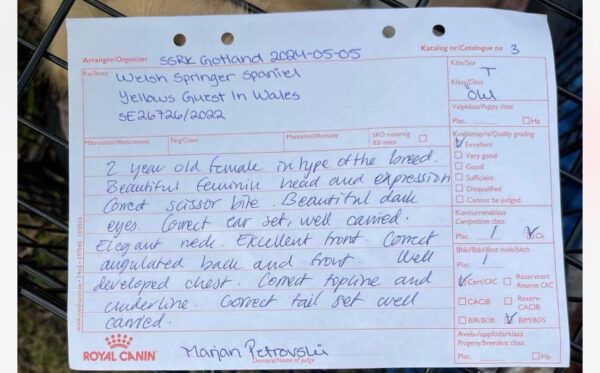 Arrangör/Organizer SSRK Gotland 2024-05-05
Katalog nr/Catalogue no 3
Ras/Breed Welsh Springer Spaniel
Yellows Guest In Wales
SE26726/2022
Kön/Sex
T
Klass/Class
ÖKL
Valpklass/Puppy class
Plac. Hp
Mätresultat/Measurement Färg/Colour Mentalitet/Mentality SRD notering
BSI notes
Kvalitetspris/Quality grading
Excellent
Very good
Good
Sufficient
Disqualified
Cannot be judged
2 year old female in type of the breed.
Beautiful feminin head and expression
Correct scissor bite. Beautiful dark
eyes. Correct ear set, well carried.
Elegant neck. Excellent front. Correct
angulated back and front. Well
developed chest. Correct topline and
underline. Correct tail set well
carried.
Konkurrensklass
Competition class
Plac. 1 Ck
Bhkl/Btkl/Best male/bitch
Plac. 1
Cert/CAC Reservcert
Reserve CAC
CACIB Reserv-
CACIB
BIR/BOB BIM/BOS
Avels-/uppfödarklass
Progeny/breeders class
Plac. Hp
ROYAL CANIN
Marjan Petrovski
Domare/Name of judge